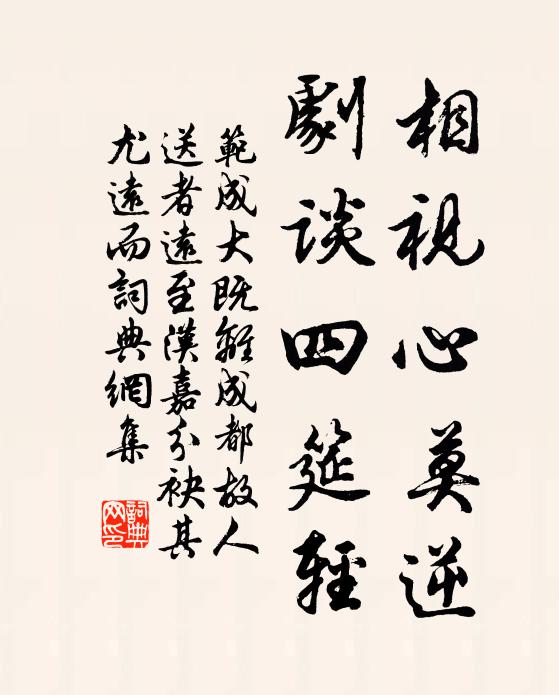 相視心莫逆
劇談四筵輕
範成大既離成都故人
送者遠至漢嘉分袂其
尤遠而詞典網集
詞典
网印